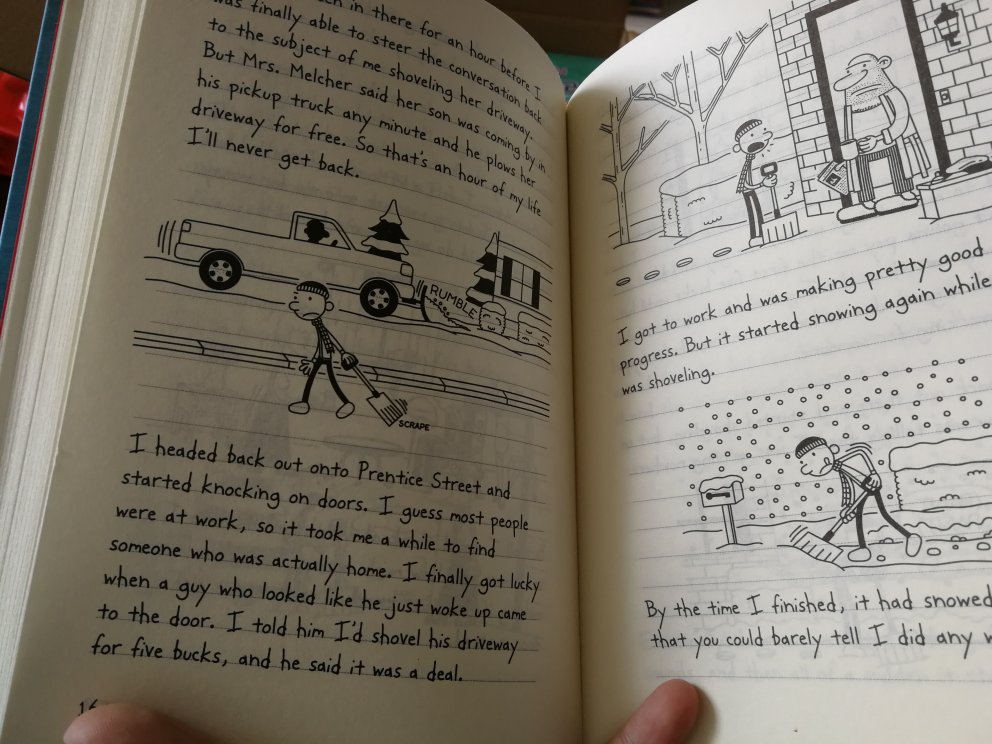 in there for an hour before I
was finally able to steer the conversation back
to the subject of me shoveling her driveway.
But Mrs. Melcher said her son was coming by in
his pickup truck any minute and he plows her
driveway for free. So that's an hour of my life
I'll never get back.
RUMBLE
SCRAPE
I headed back out onto Prentice Street and
started knocking on doors. I guess most people
were at work, so it took me a while to find
someone who was actually home. I finally got lucky
when a guy who looked like he just woke up came
to the door. I told him I'd shovel his driveway
for five bucks, and he said it was a deal.
I got to work and was making pretty good
progress. But it started snowing again while
was shoveling.
By the time I finished, it had snowed
that you could barely tell I did any